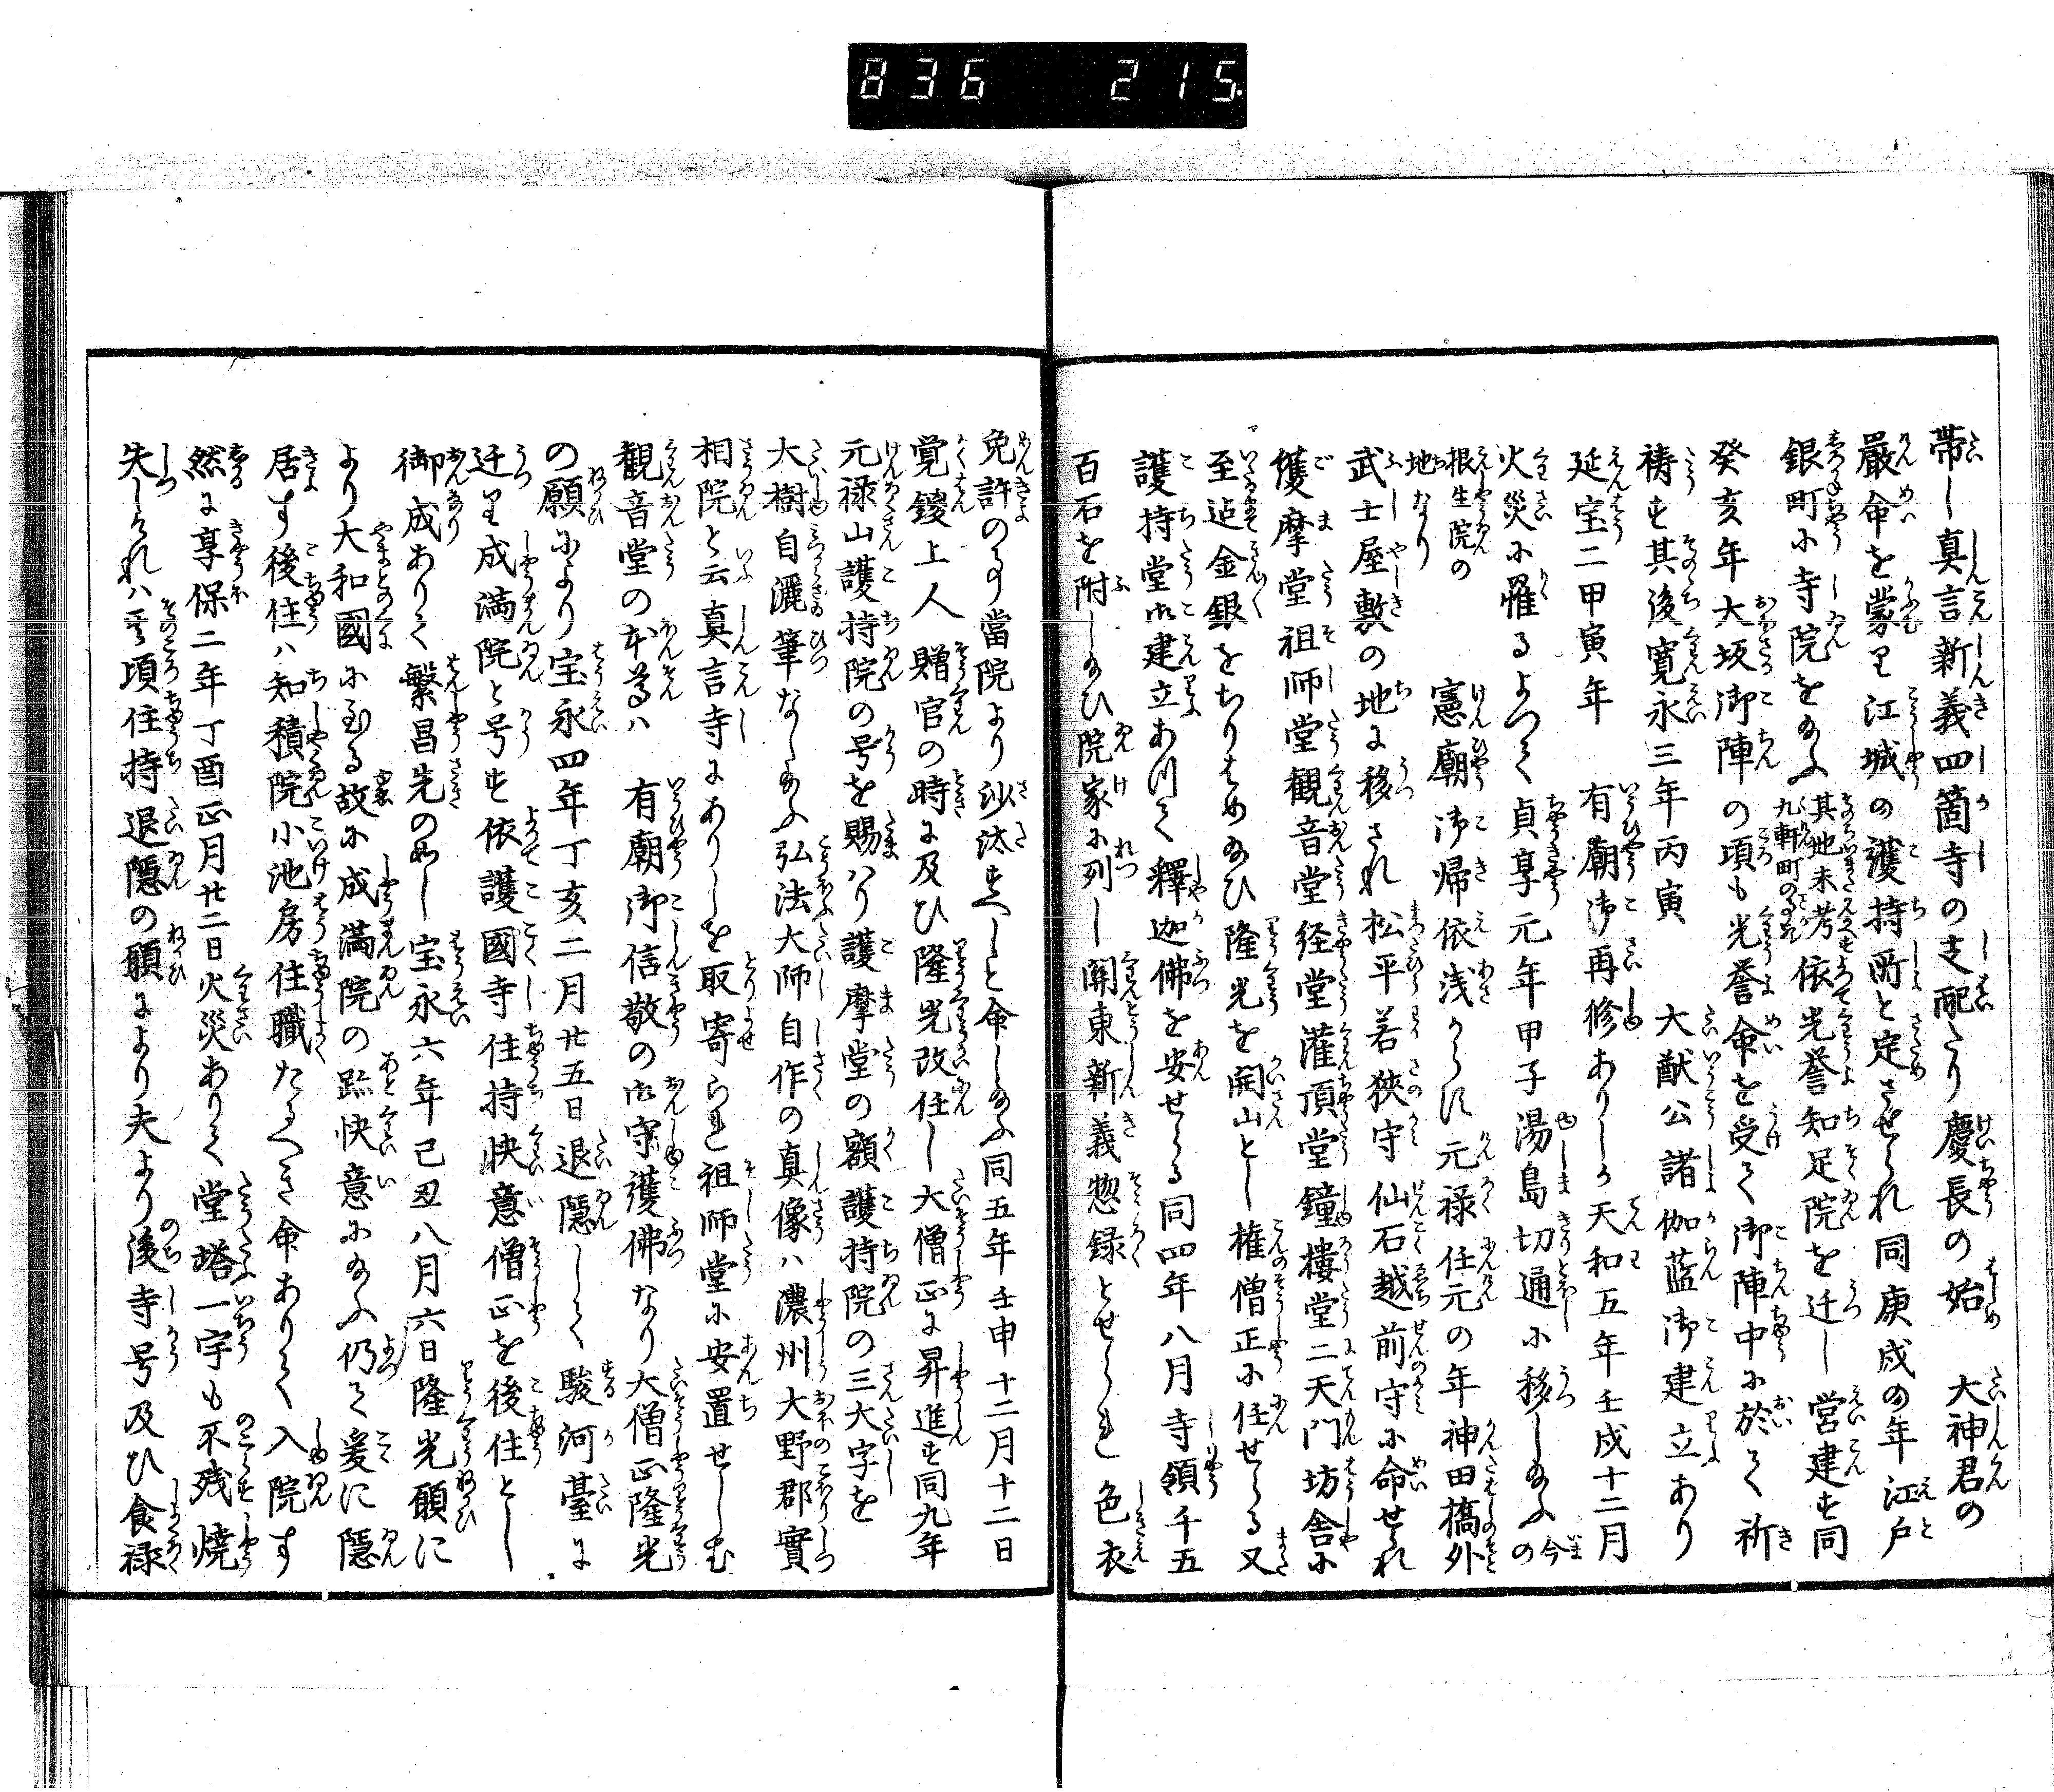 836 215
帯し真言新義四箇寺の支配たり慶長の始 大神君の
厳命を蒙り江城の護持所と定させられ同庚戌の年江戸
銀町に寺院を給ふ其地未考依光誉知足院を迁し営建す同
九軒町の
癸亥年大坂御陣の頃も光誉命を受て御陣中に於て祈
祷す其後寛永三年丙寅 大猷公諸伽藍御建立あり
延宝二甲寅年 有廟御再修ありしか天和五年壬戌十二月
火災に罹るよつて貞享元年甲子湯島切通に移し給ふ今の
根生院の地なり 憲廟御帰依浅からす元禄任元の年神田橋外
武士屋敷の地に移され松平若狭守仙石越前守に命せられ
護摩堂祖師堂観音堂経堂灌頂堂鐘楼堂二天門坊舎に
至迠金銀をちりはめ給ひ隆光を開山とし権僧正に任せらる又
護持堂御建立あつて釋迦佛を安せらる同四年八月寺領千五
百石を附し給ひ院家に列し関東新義惣録とせられ色衣
免許の事當院より沙汰すへしと命し給ふ同五年壬申十二月十二日
覚鑁上人贈官の時に及ひ隆光改任し大僧正に昇進す同九年
元禄山護持院の号を賜はり護摩堂の額護持院の三大字を
大樹自灑筆なし給ふ弘法大師自作の真像ハ濃州大野郡實
相院と云真言寺にありしを取寄られ祖師堂に安置せしむ
観音堂の本尊ハ 有廟御信敬の御守護佛なり大僧正隆光
の願により宝永四年丁亥二月廿五日退隠して駿河臺に
迁り成満院と号す依護國寺住持快意僧正を後住とし
御成ありて繁昌先の如し宝永六年己丑八月六日隆光願に
より大和國に至る故に成満院の跡快意に給ふ仍て爰に隠
居す後住ハ知積院小池房住職たるへき命ありて入院す
然に享保二年丁酉正月廿二日火災ありて堂塔一宇も不残焼
失しけれハ其頃住持退隠の願により夫より後寺号及ひ食禄